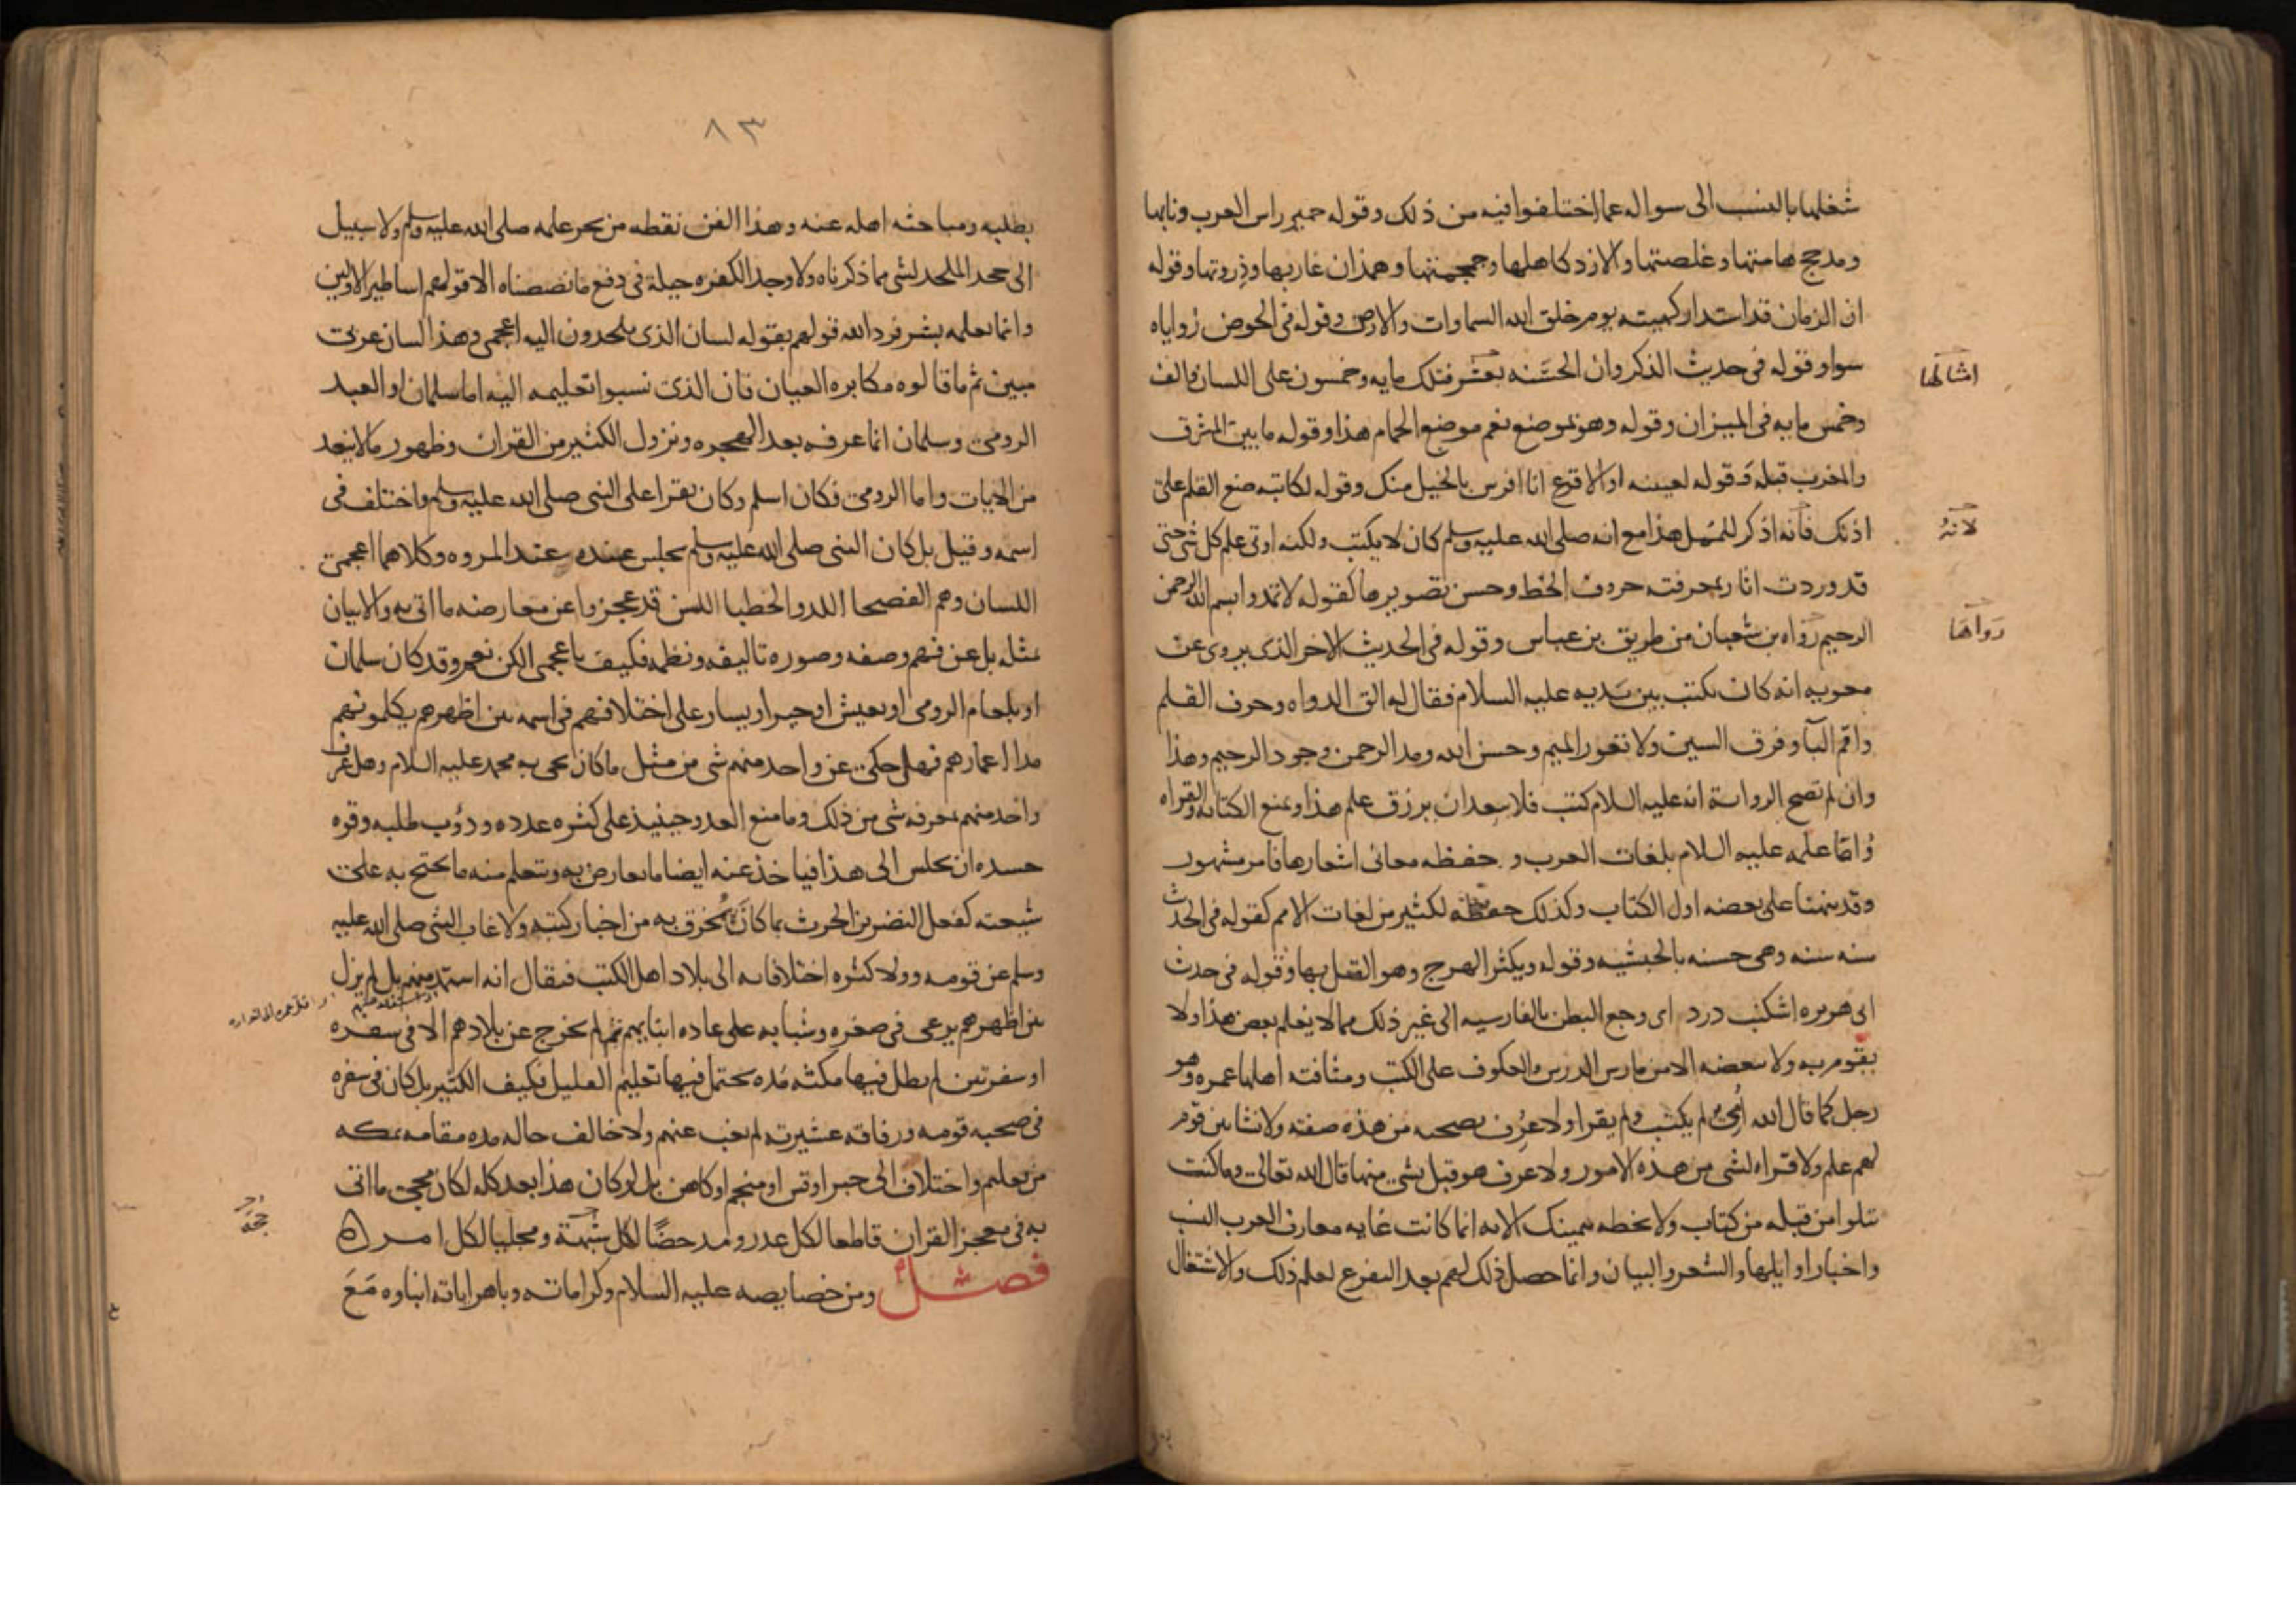 شغلها بالنسب الى سواله عما اختلفوا فيه من ذلك وقوله حمير راس العرب ونابها
ومدحج هامتها وغلصمتها والازد كاهلها وجمجمتها وهمدان غاربها وذروتها وقوله
ان الزمان قد استدار كهيته يوم خلق الله السماوات والارض وقوله فى الحوض زواياه
سوا وقوله فى حديث الذكر وان الحسنه بعشر فتلك مايه وخمسون على اللسان والف
امثالها
وخمس مايه فى الميزان وقوله وهو بموضع نعم موضع الحمام هذا وقوله ما بين المشرق
والمغرب قبلة وقوله لعيينه او الاقرع انا افرس بالخيل منك وقوله لكاتبه ضع القلم على
اذنك فانه اذكر للممل هذا مع انه صلى الله عليه وسلم كان لا يكتب ولكنه اوتى علم كل شى حتى
لانه
قد وردت اثار بمعرفته حروف الخط وحسن تصويرها كقوله لا تمدوا بسم الله الرحمن
الرحيم رواه بن شعبان من طريق بن عباس وقوله فى الحديث الاخر الذى يروى عن
رواها
معويه انه كان يكتب بين يديه عليه السلام فقال له الق الدواه وحرف القلم
واقم البآ وفرق السين ولا تعور الميم وحسن الله ومد الرحمن وجود الرحيم وهذا
وان لم تصح الرواية انه عليه السلام كتب فلا يبعد ان يرزق علم هذا ويمنع الكتابه والقراه
واما علمه عليه السلام بلغات العرب وحفظه معانى اشعارها فامر مشهور
وقد نبهنا على بعضه اول الكتاب وكذلك حفظه لكثير من لغات الامم كقوله فى الحديث
سنه سنه وهى حسنه بالحبشيه وقوله ويكثر الهرج وهو القتل بها وقوله فى حديث
ابى هريره اشكنب درد اى وجع البطن بالفارسيه الى غير ذلك مما لا يعلم بعض هذا ولا
يقوم به ولا ببعضه الا من مارس الدرس والعكوف على الكتب ومثافنة اهلها عمره وهو
رجل كما قال الله امى لم يكتب ولم يقرا ولا عرف بصحبه من هذه صفته ولا نشا بين قوم
لهم علم ولا قراه لشى من هذه الامور ولا عرف هو قبل بشى منها قال الله تعالى وما كنت
تتلوا من قبله من كتاب ولا تخطه بيمينك الايه انما كانت غايه معارف العرب النسب
واخبار اوايلها والشعر والبيان وانما حصل ذلك لهم بعد التفرغ لعلم ذلك والاشتغال
٨٣
بطلبه ومباحثه اهله عنه وهذا الفن نقطه من بحر علمه صلى الله عليه وسلم ولا سبيل
الى جحد الملحد لشى مما ذكرناه ولا وجد الكفره حيلة فى دفع ما نصصناه الا قولهم اساطير الاولين
وانما يعلمه بشر فرد الله قولهم بقوله لسان الذى يلحدون اليه اعجمى وهذا لسان عربى
مبين ثم ما قالوه مكابره العيان فان الذى نسبوا تعليمه اليه اما سلمان او العبد
الرومى وسلمان انما عرفه بعد الهجره ونزول الكثير من القران وظهور ما لا ينعد
من الايات واما الرومى فكان اسلم وكان يقرا على النبى صلى الله عليه وسلم واختلف فى
اسمه وقيل بل كان النبى صلى الله عليه وسلم يجلس عنده عند المروه وكلاهما اعجمى
اللسان وهم الفصحا اللد والخطبا اللسن قد عجزوا عن معارضه ما اتى به والاتيان
بمثله بل عن فهم وصفه وصوره تاليفه ونظمه فكيف باعجمى الكن نعم وقد كان سلمان
او بلعام الرومى او يعيش او جبر او يسار على اختلافهم فى اسمه بين اظهرهم يكلمونهم
مدا اعمارهم فهل حكى عن واحد منهم شى من مثل ما كان يجى به محمد عليه السلام وهل عرف
واحد منهم بمعرفه شى من ذلك وما منع العدو حينيذ على كثره عدده ودؤب طلبه وقوه
حسده ان يجلس الى هذا فياخذ عنه ايضا ما يعارض به ويتعلم منه ما يحتج به على
شيعته كفعل النضر بن الحرث بما كان يمخرق به من اخبار كتبه ولا غاب النبى صلى الله عليه
وسلم عن قومه ولا كثره اختلافاته الى بلاد اهل الكتب فيقال انه استمد منهم بل لم يزل
بين اظهرهم يرعى فى صغره وشبابه على عاده ابنايهم ثم لم يخرج عن بلادهم الا فى سفره
او سفرتين لم يطل فيها مكثه مده يحتمل فيها تعليم القليل فكيف الكثير بل كان فى سفره
فى صحبه قومه ورفاقه عشيرته لم يغب عنهم ولا خالف حاله مده مقامه بمكه
من تعليم واختلاف الى حبر او قس او منجم او كاهن بل لو كان هذا بعد كله لكان مجى ما اتى
به فى معجز القران قاطعا لكل عذر ومدحضا لكل شبهة ومجليا لكل امر ه
حجة
فصل ومن خصايصه عليه السلام وكراماته وباهر اياته انباوه مع